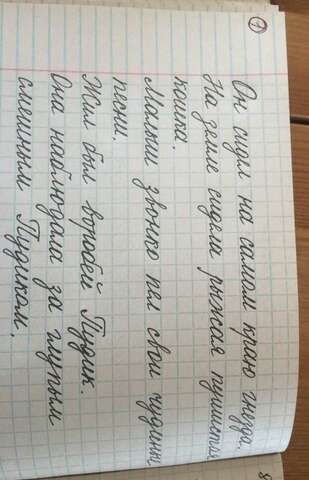 1
Он сидел на самом краю гнезда.
На земле сидела рыжая пушистая
кошка.
Малыш звонко пел свои чудные
песни.
Жил был воробей Пудик.
Она наблюдала за глупым
смешным Пудиком.
8